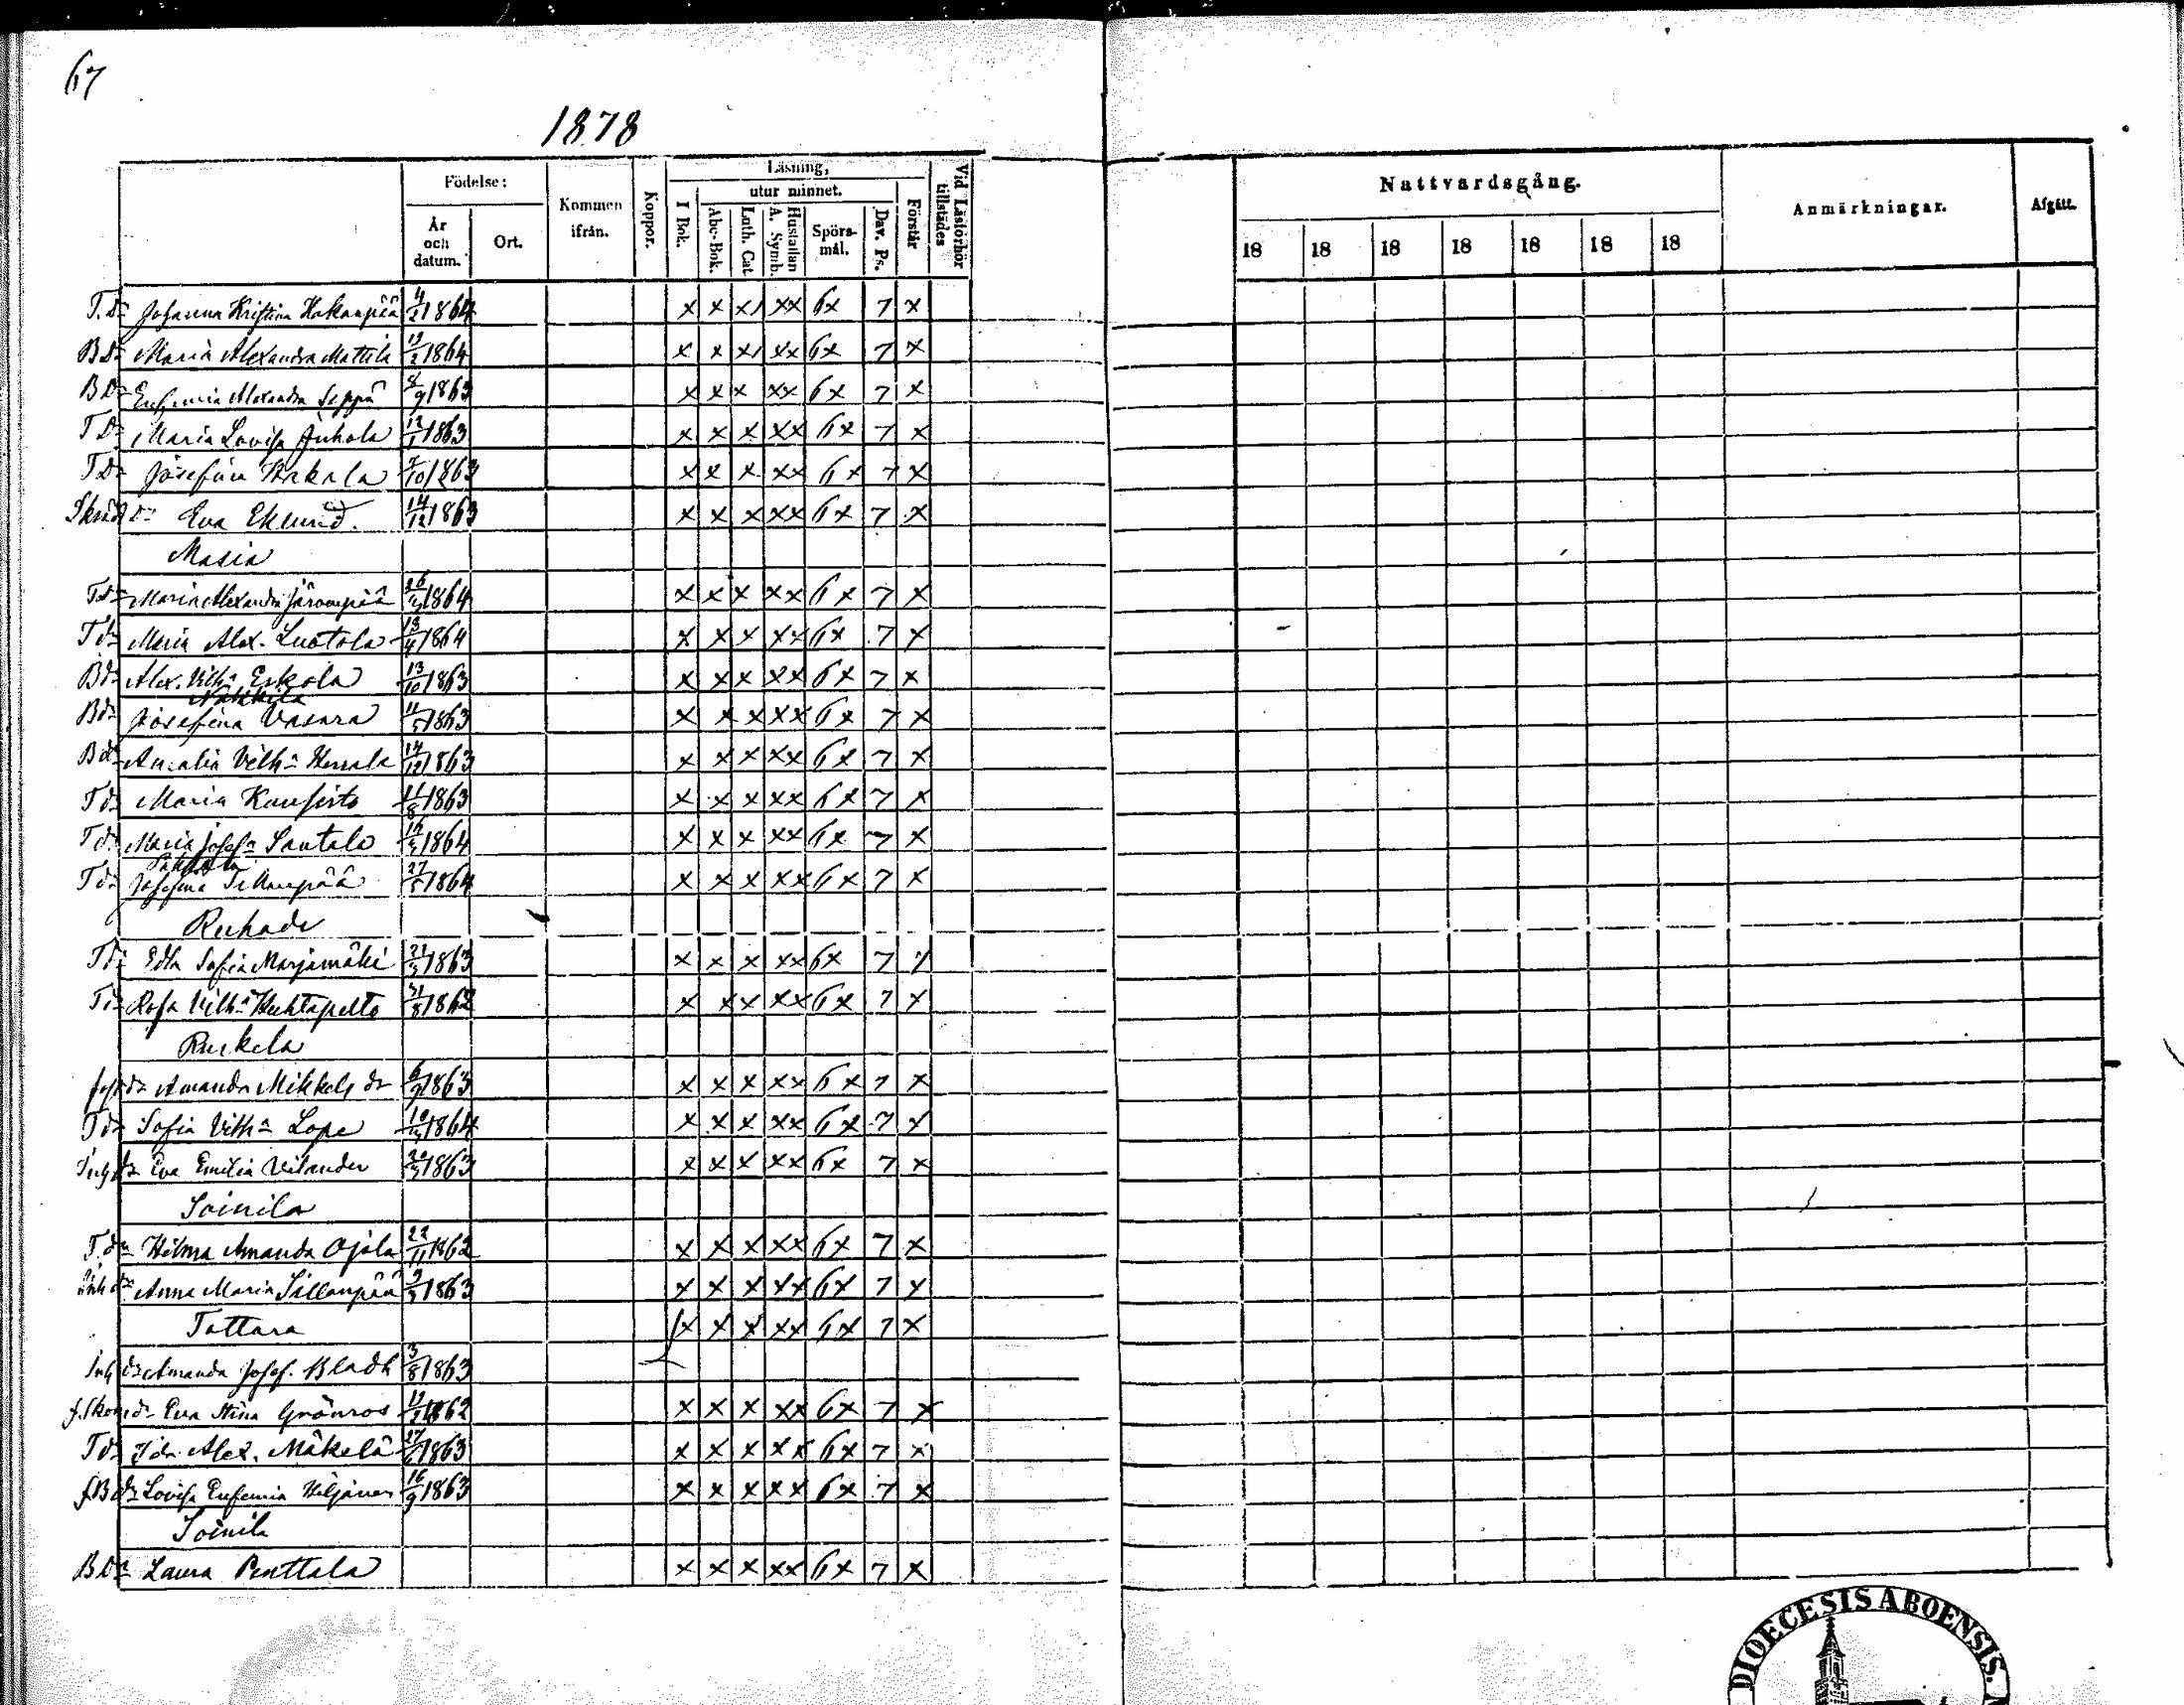 67
1878
Födelse:
År och datum.
Ort.
Kommen ifrån.
Koppor.
Läsning,
I Bok.
utur minnet.
Abc-Bok.
Luth. Cat.
Hustaflan A. Symb.
Spörsmål.
Dav. Ps.
Förstår
Vid Läsförhör tillstädes
Nattvardsgång.
18 18 18 18 18 18 18
Anmärkningar.
Afgått.
T. Dr Johanna Kristina Hakanpää 4/2 1864 x x x xx 6x 7 x
B Dr Maria Alexandra Mattila 19/2 1864 x x x xx 6x 7 x
B Dr Eufemia Alexandra Seppä /9 1863 x x x xx 6x 7 x
T Dr Maria Lovisa Juhola 12/1 1863 x x x xx 6x 7 x
T Dr Josefina /10 1863 x x x xx 6x 7 x
Skrädr Eva Eklund. 14/12 1863 x x x xx 6x 7 x
Masia
T dr Maria Alexandra Järvenpää 26/3 1864 x x x xx 6x 7 x
T dr Maria Alex. Luotola 13/4 1864 x x x xx 6x 7 x
B dr Alex. Vilh:a Eskola 13/10 1863 x x x xx 6x 7 x
B dr Josefina Vasara 11/5 1863 x x x xx 6x 7 x
B dr Amalia Vilh:a 14/12 1863 x x x xx 6x 7 x
T dr Maria 11/8 1863 x x x xx 6x 7 x
T dr Maria Josef:a Santala 1864 x x x xx 6x 7 x
T dr Josefina 27/5 1864 x x x xx 6x 7 x
T dr Edla Sofia Marjamäki 21/3 1863 x x x xx 6x 7 x
T dr Rosa Vilh:a Huhtapelto 31/8 1862 x x x xx 6x 7 x
Ruskela
dr Amanda Mikkels dr 6/9 1863 x x x xx 6x 7 x
T dr Sofia Vilh:a Lope 1864 x x x xx 6x 7 x
Inh dr Eva Emilia Vilander 20/3 1863 x x x xx 6x 7 x
Soinila
T. dr Hilma Amanda Ojala 22/11 1862 x x x xx 6x 7 x
Inh dr Anna Maria Sillanpää 1863 x x x xx 6x 7 x
Tattara x x x xx 6x 7 x
Inh dr Amanda Josef. Bladh 3/8 1863
f. Skom dr Eva Stina Grönroos 1862 x x x xx 6x 7 x
T dr Ida Alex. Mäkelä 27/ 1863 x x x xx 6x 7 x
f B dr Lovisa Eufemia Viljanen 16/9 1863 x x x xx 6x 7 x
Soinila
B Dr Laura Penttala x x x xx 6x 7 x
DIOECESIS ABOENSIS